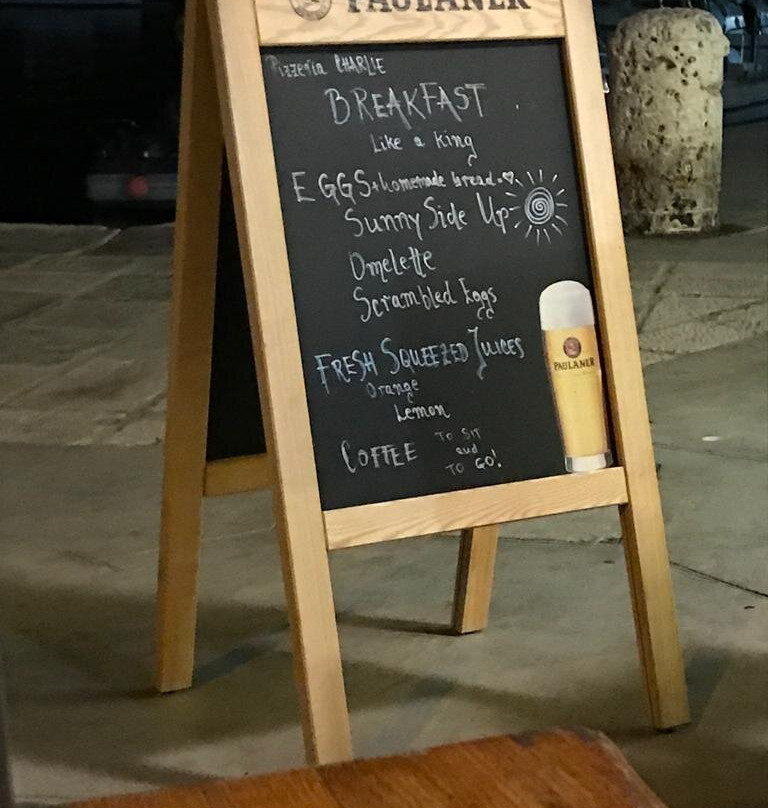 PAULANER
Pizzeria CHARLIE
BREAKFAST
Like a king
EGGS + homemade bread
Sunny Side Up
Omelette
Scrambled Eggs
FRESH SQUEEZED JUICES
Orange
Lemon
COFFEE TO SIT
and
TO GO!
PAULANER